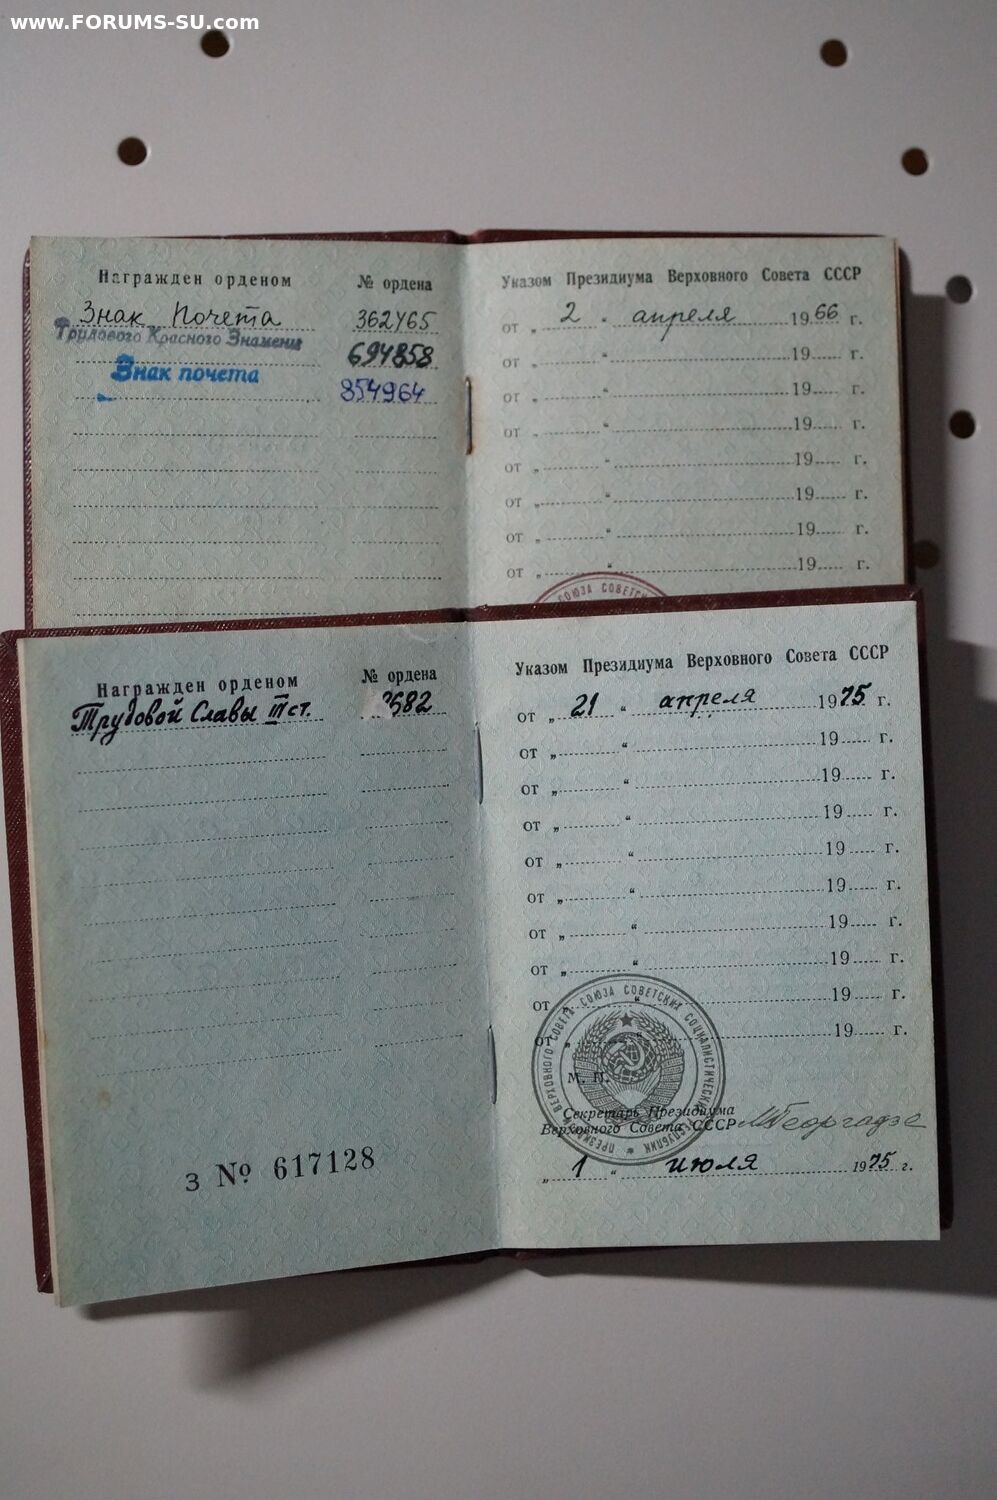 www.FORUMS-SU.com
Награжден орденом № ордена
Знак Почета 362465
Трудового Красного Знамени 694858
Знак почета 854964
Указом Президиума Верховного Совета СССР
от „ 2 “ апреля 1966 г.
от „ “ 19 г.
от „ “ 19 г.
от „ “ 19 г.
от „ “ 19 г.
от „ “ 19 г.
от „ “ 19 г.
от „ “ 19 г.
СОЮЗА СОВЕТСК
Награжден орденом № ордена
Трудовой Славы III ст. 3682
З № 617128
Указом Президиума Верховного Совета СССР
от „ 21 “ апреля 1975 г.
от „ “ 19 г.
от „ “ 19 г.
от „ “ 19 г.
от „ “ 19 г.
от „ “ 19 г.
от „ “ 19 г.
от „ “ 19 г.
от „ “ 19 г.
от „ “ 19 г.
ПРЕЗИДИУМ ВЕРХОВНОГО СОВЕТА СОЮЗА СОВЕТСКИХ СОЦИАЛИСТИЧЕСКИХ РЕСПУБЛИК
М. П.
Секретарь Президиума
Верховного Совета СССР М Георгадзе
„ 1 “ июля 1975 г.